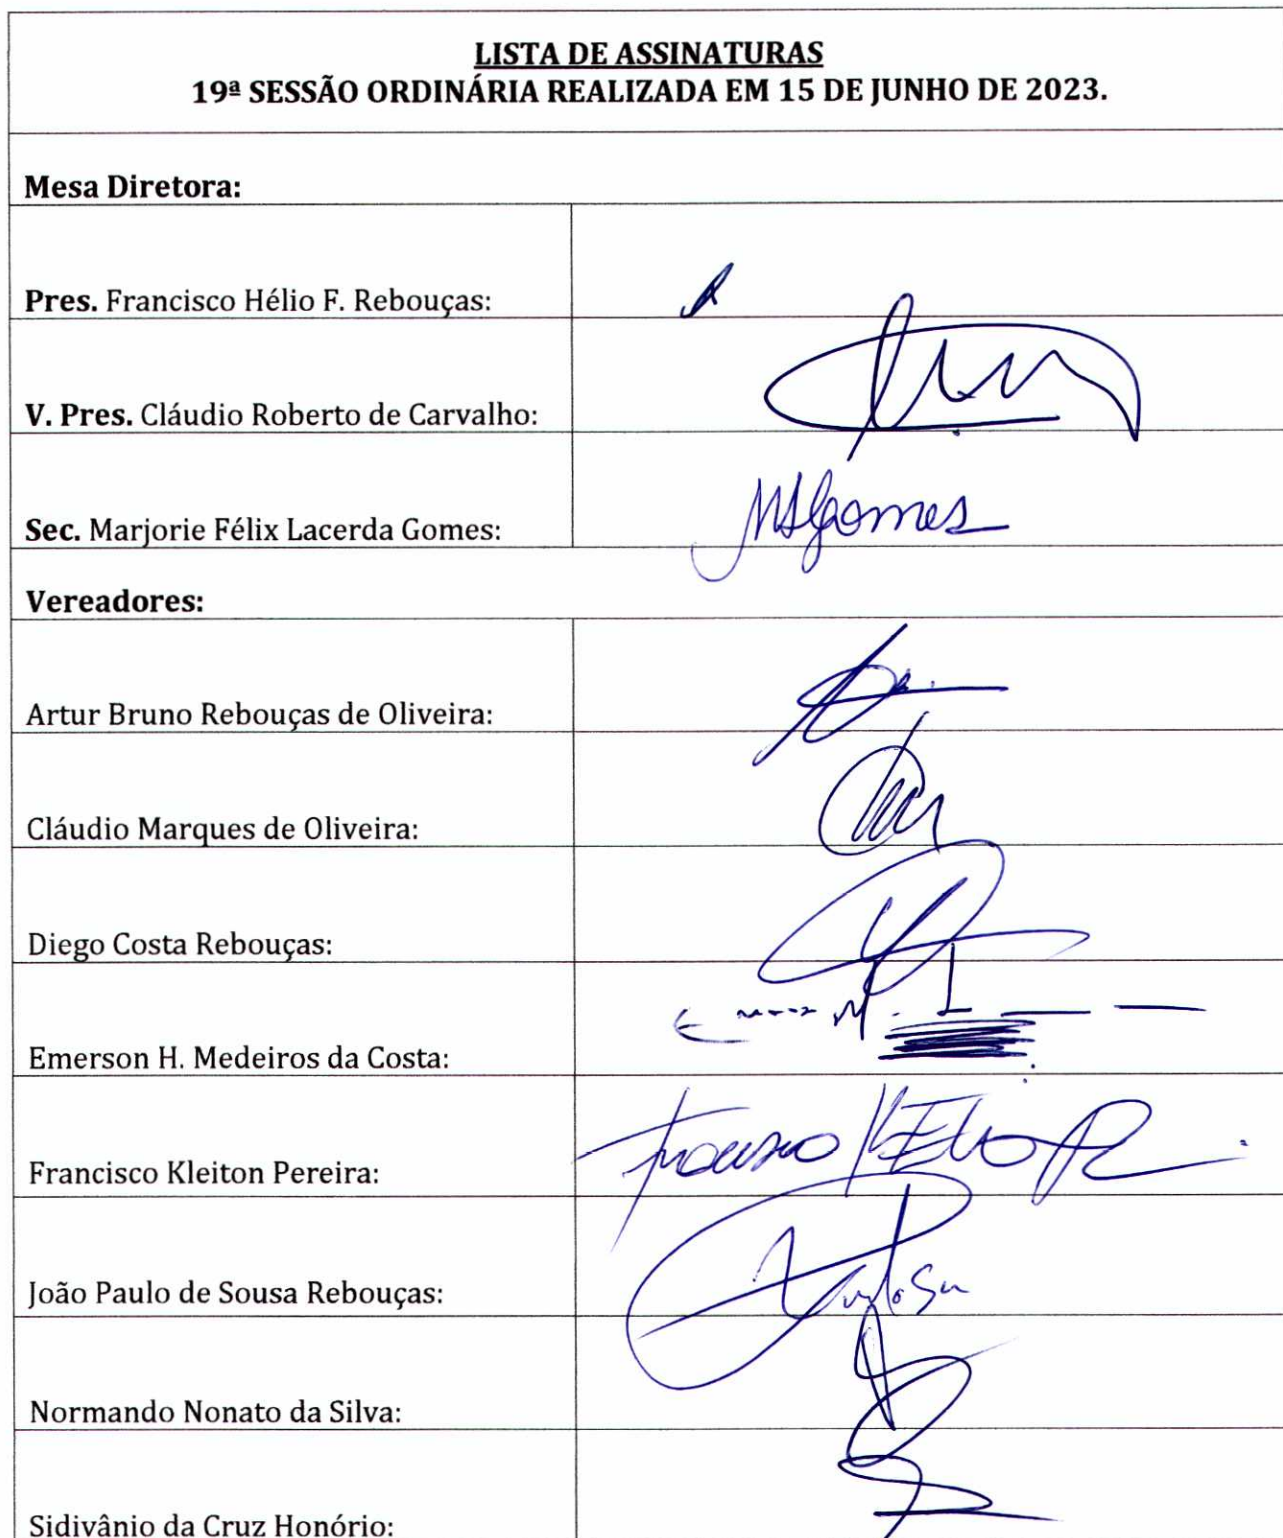 LISTA DE ASSINATURAS
19ª SESSÃO ORDINÁRIA REALIZADA EM 15 DE JUNHO DE 2023.
Mesa Diretora:
Pres. Francisco Hélio F. Rebouças:
V. Pres. Cláudio Roberto de Carvalho:
Sec. Marjorie Félix Lacerda Gomes: MLGomes
Vereadores:
Artur Bruno Rebouças de Oliveira:
Cláudio Marques de Oliveira:
Diego Costa Rebouças:
Emerson H. Medeiros da Costa:
Francisco Kleiton Pereira: Francisco
João Paulo de Sousa Rebouças:
Normando Nonato da Silva:
Sidivânio da Cruz Honório: